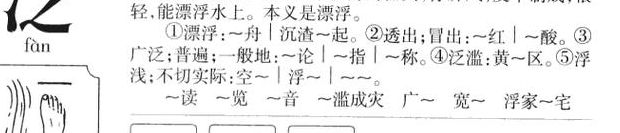 泛
fàn
轻,能漂浮水上。本义是漂浮。
①漂浮:~舟│沉渣~起。②透出;冒出:~红│~酸。③
广泛;普遍;一般地:~论│~指│~称。④泛滥:黄~区。⑤浮
浅;不切实际:空~│浮~│~~。
~读 ~览 ~音 ~滥成灾 广~ 宽~ 浮家~宅